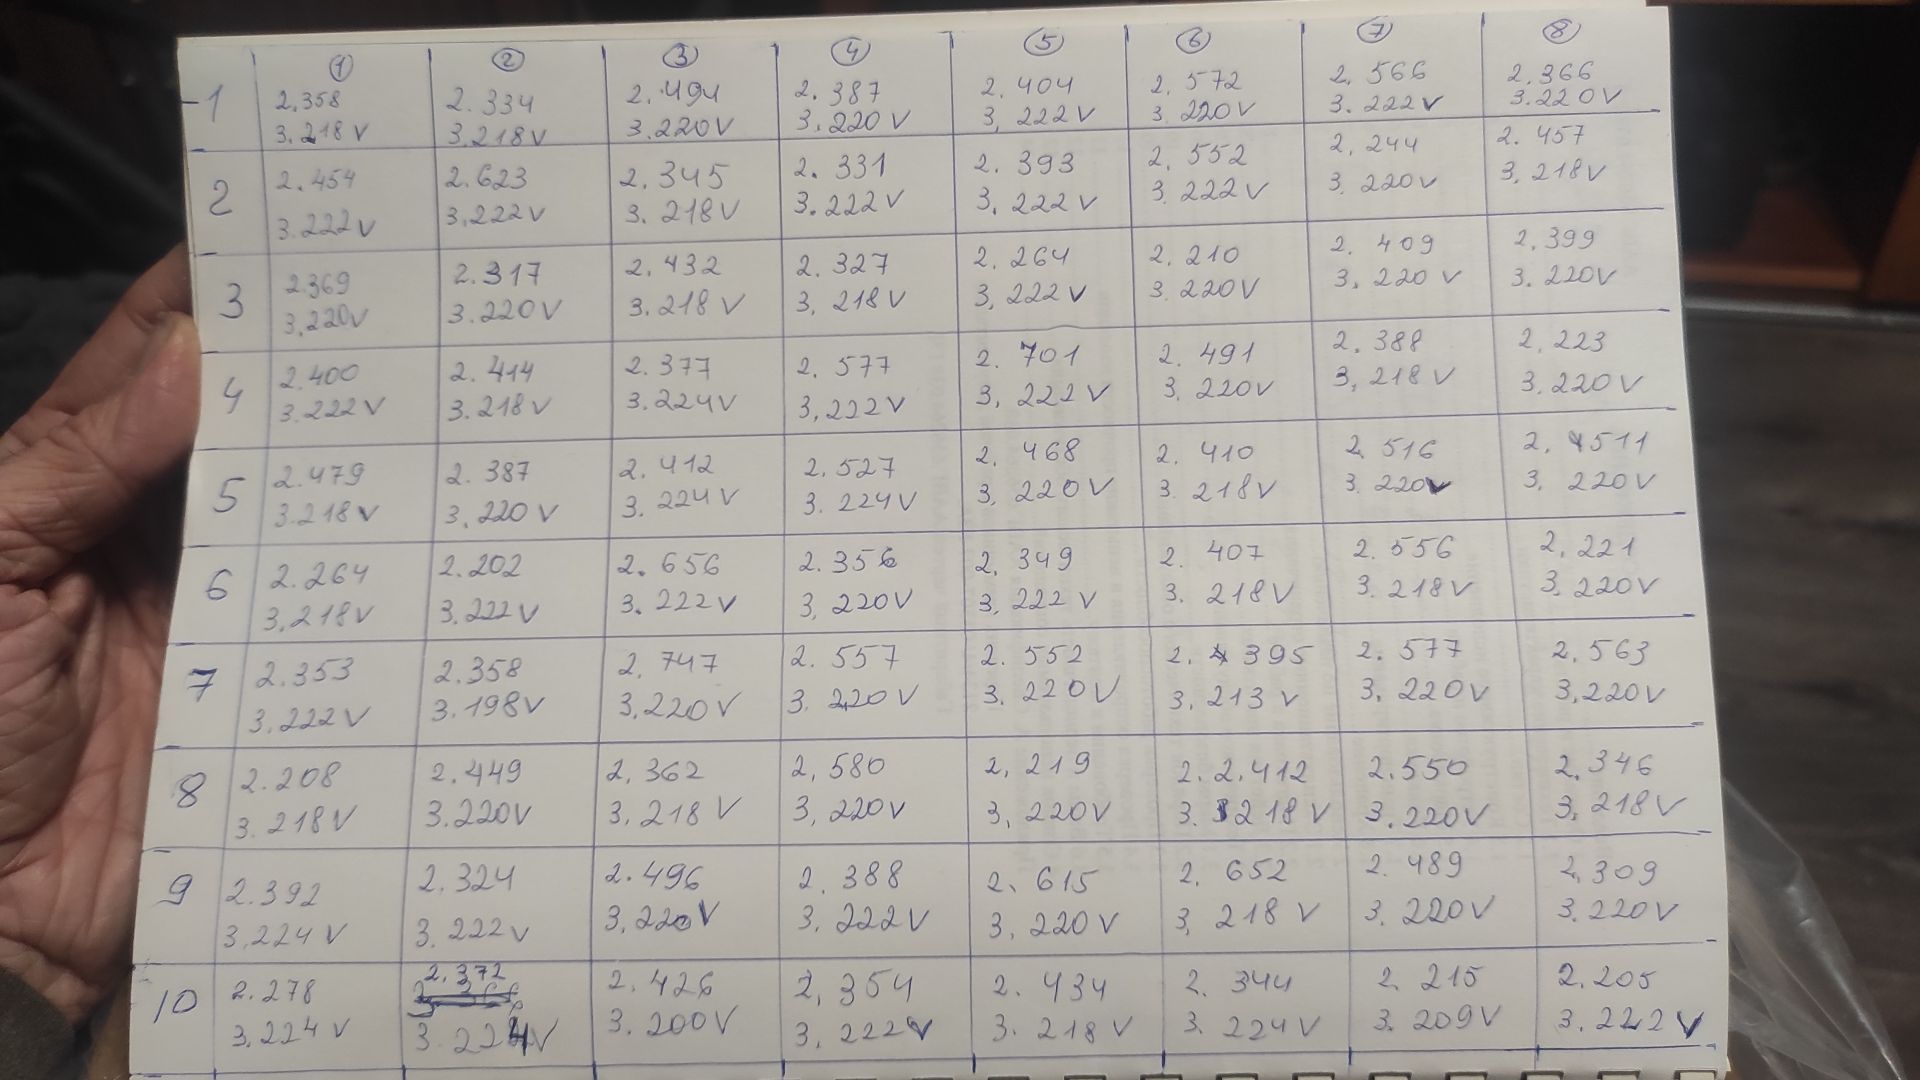 ① ② ③ ④ ⑤ ⑥ ⑦ ⑧
1 2.358 2.334 2.494 2.387 2.404 2.572 2.566 2.366
3.218V 3.218V 3.220V 3.220V 3.222V 3.220V 3.222V 3.220V
2 2.454 2.623 2.345 2.331 2.393 2.552 2.244 2.457
3.222V 3.222V 3.218V 3.222V 3.222V 3.222V 3.220V 3.218V
3 2.369 2.317 2.432 2.327 2.264 2.210 2.409 2.399
3.220V 3.220V 3.218V 3.218V 3.222V 3.220V 3.220V 3.220V
4 2.400 2.414 2.377 2.577 2.701 2.491 2.388 2.223
3.222V 3.218V 3.224V 3.222V 3.222V 3.220V 3.218V 3.220V
5 2.479 2.387 2.412 2.527 2.468 2.410 2.516 2.511
3.218V 3.220V 3.224V 3.224V 3.220V 3.218V 3.220V 3.220V
6 2.264 2.202 2.656 2.356 2.349 2.407 2.556 2.221
3.218V 3.222V 3.222V 3.220V 3.222V 3.218V 3.218V 3.220V
7 2.353 2.358 2.747 2.557 2.552 2.395 2.577 2.563
3.222V 3.198V 3.220V 3.220V 3.220V 3.213V 3.220V 3.220V
8 2.208 2.449 2.362 2.580 2.219 2.2.412 2.550 2.346
3.218V 3.220V 3.218V 3.220V 3.220V 3.218V 3.220V 3.218V
9 2.392 2.324 2.496 2.388 2.615 2.652 2.489 2.309
3.224V 3.222V 3.220V 3.222V 3.220V 3.218V 3.220V 3.220V
10 2.278 2.372 2.426 2.354 2.434 2.344 2.215 2.205
3.224V 3.224V 3.200V 3.222V 3.218V 3.224V 3.209V 3.222V